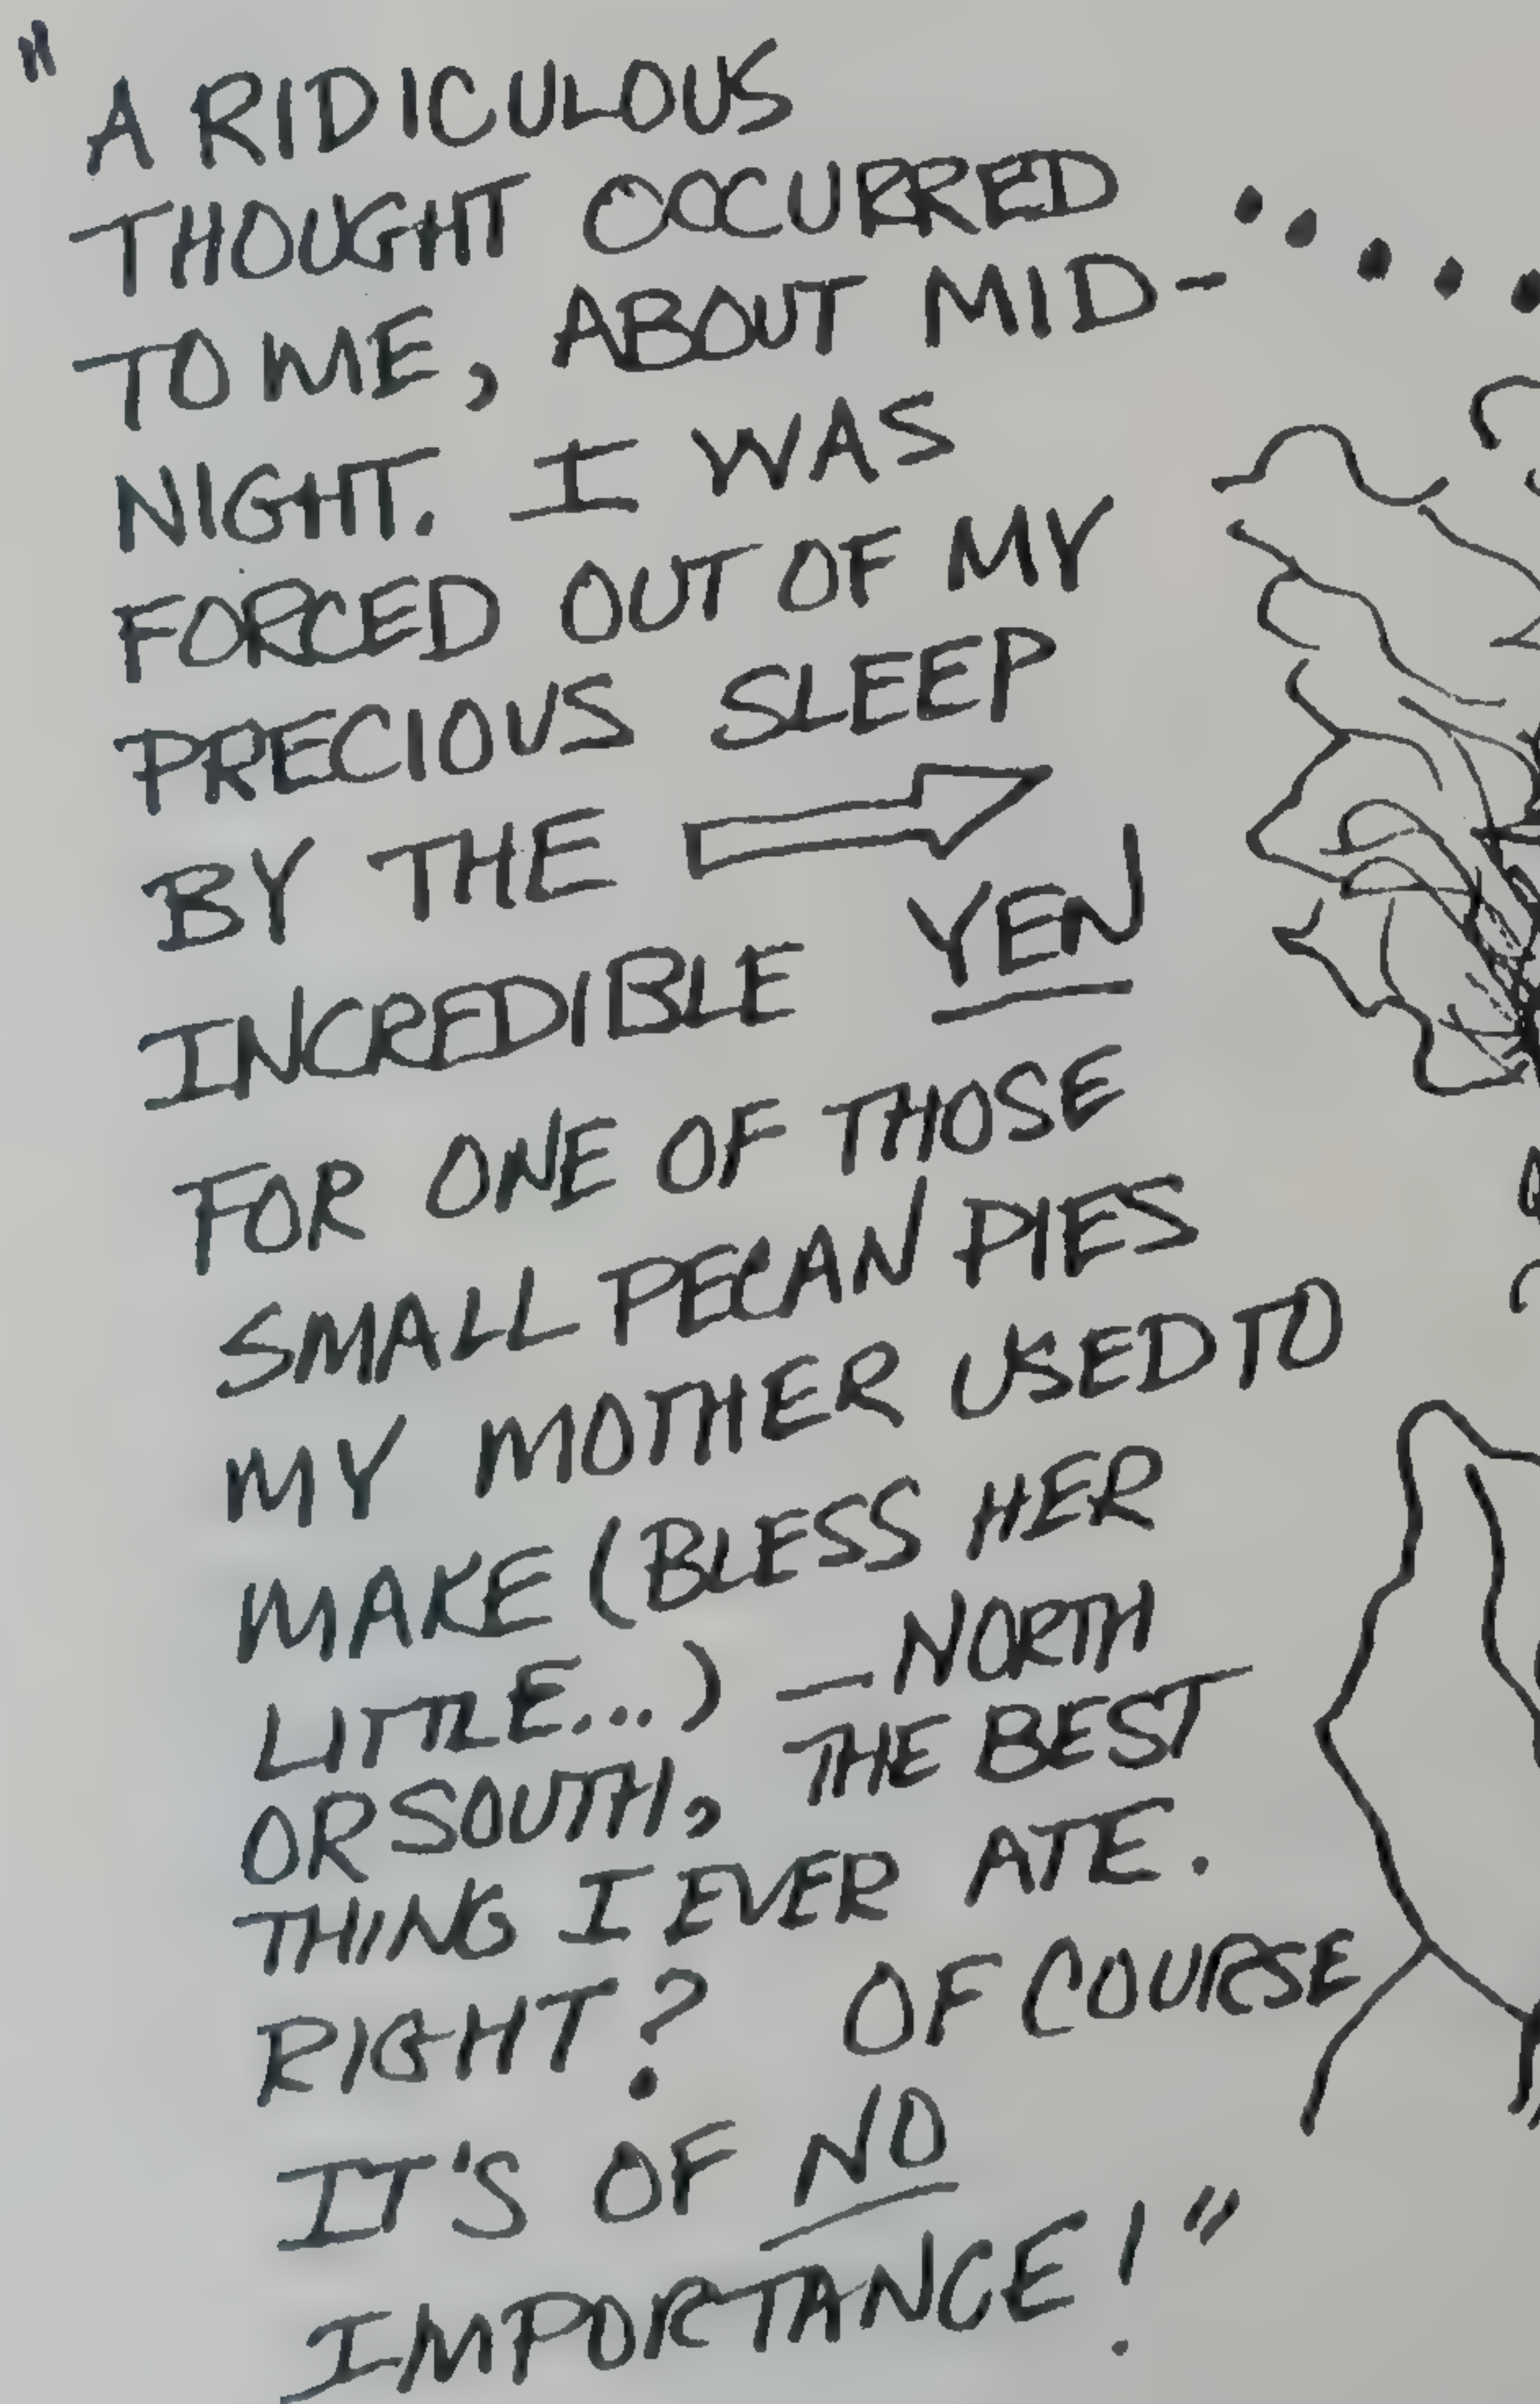 "A RIDICULOUS
THOUGHT OCCURRED
TO ME, ABOUT MID-
NIGHT. I WAS
FORCED OUT OF MY
PRECIOUS SLEEP
BY THE
INCREDIBLE YEN
FOR ONE OF THOSE
SMALL PECAN PIES
MY MOTHER USED TO
MAKE (BLESS HER
LITTLE...) — NORTH
OR SOUTH, THE BEST
THING I EVER ATE.
RIGHT? OF COURSE
IT'S OF NO
IMPORTANCE!"